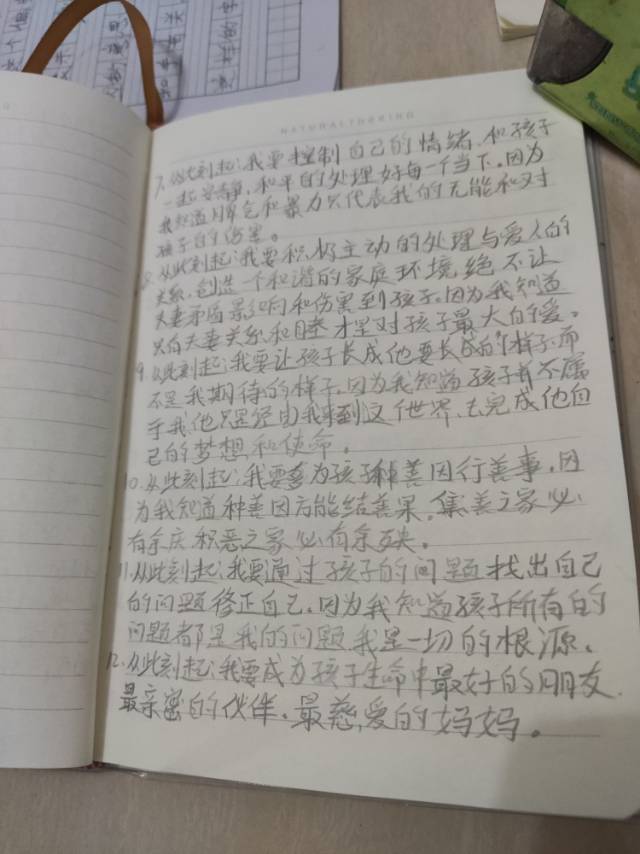 NATURALTHOKING
7.从此刻起:我要控制自己的情绪,和孩子
一起安静,和平的处理好每一个当下。因为
我知道脾气和暴力只代表我的无能和对
孩子的伤害。
8.从此刻起:我要积极主动的处理与爱人的
关系,创造一个和谐的家庭环境,绝不让
夫妻矛盾影响和伤害到孩子。因为我知道
只有夫妻关系和睦才是对孩子最大的爱。
9.从此刻起:我要让孩子长成他要长成的样子,而
不是我期待的样子。因为我知道孩子并不属
于我,他只是经由我来到这个世界、去完成他自
己的梦想和使命。
10.从此刻起:我要多为孩子种善因行善事,因
为我知道种善因方能结善果,集善之家必
有余庆,积恶之家必有余殃。
11.从此刻起:我要通过孩子的问题找出自己
的问题修正自己。因为我知道孩子所有的
问题都是我的问题,我是一切的根源。
12.从此刻起:我要成为孩子生命中最好的朋友,
最亲密的伙伴,最慈爱的妈妈。